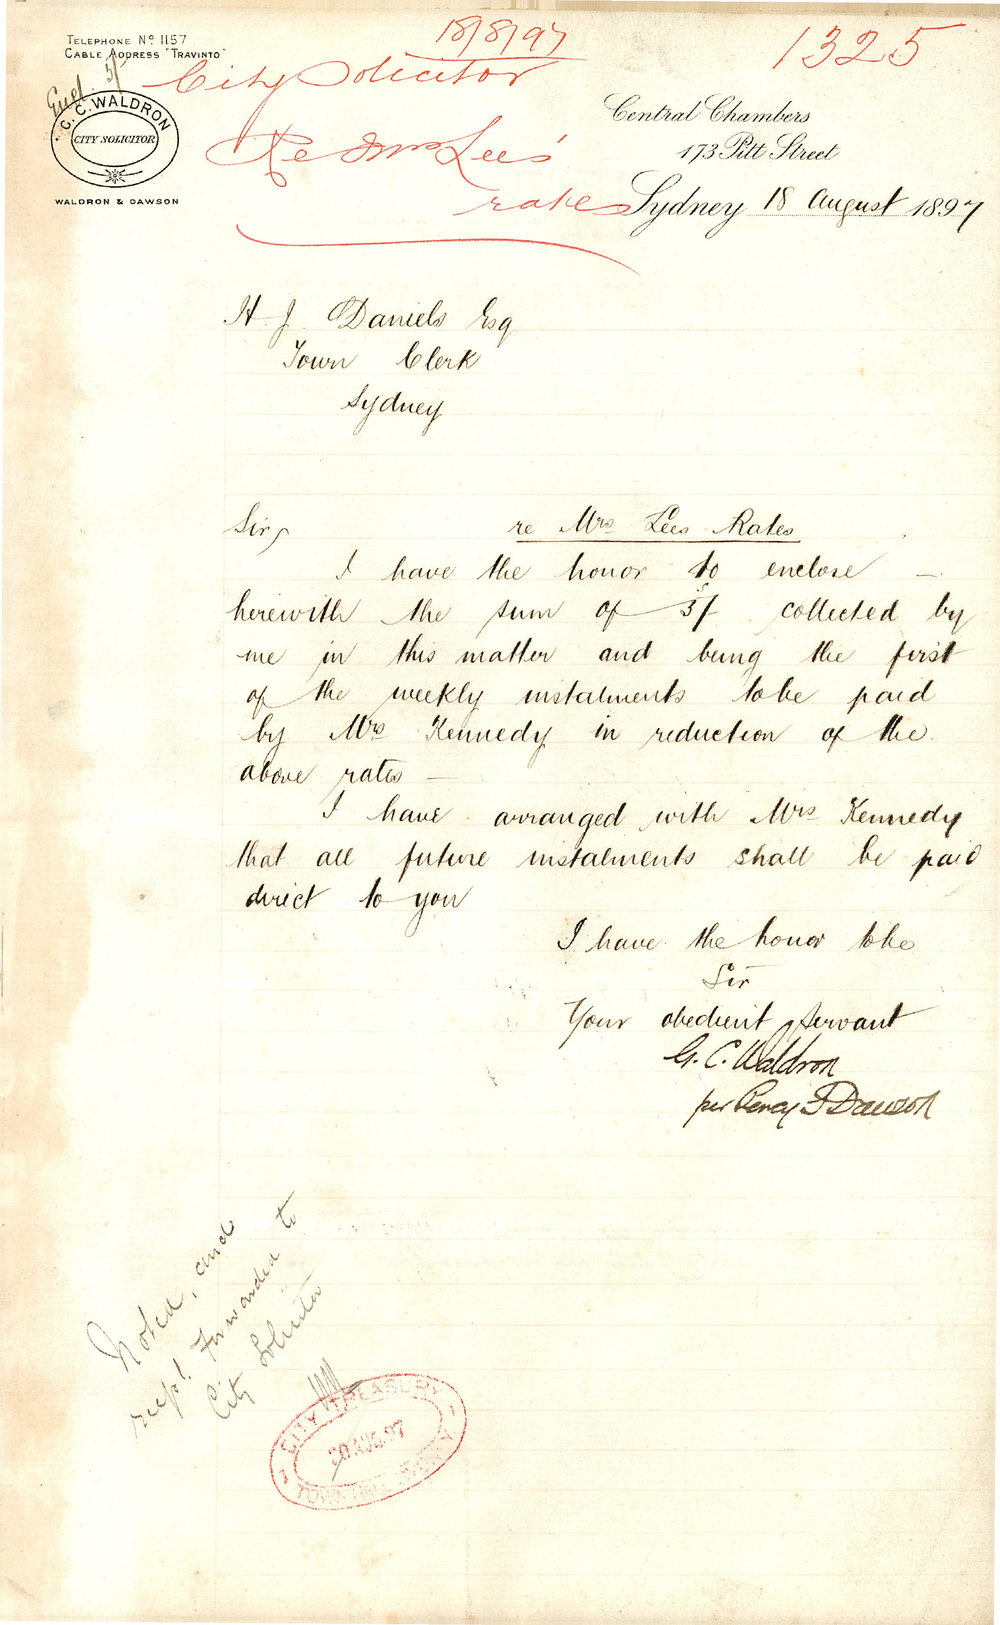 18/8/97
1325
TELEPHONE No 1157
CABLE ADDRESS "TRAVINTO"
City Solicitor
Encl. 5/
G. C. WALDRON
CITY SOLICITOR
WALDRON & DAWSON
Re Mrs Lee's
rates
Central Chambers
173 Pitt Street
Sydney 18 August 1897
H J Daniels Esq
Town Clerk
Sydney
Sir,
re Mrs Lees Rates
I have the honor to enclose —
herewith the sum of 5/ collected by
me in this matter and being the first
of the weekly instalments to be paid
by Mrs Kennedy in reduction of the
above rates —
I have arranged with Mrs Kennedy
that all future instalments shall be paid
direct to you
I have the honor to be
Sir
Your obedient servant
G. C. Waldron
per Percy Dawson
Noted, and
recpt. Forwarded to
City Solicitor
CITY TREASURY
20 AUG. 97